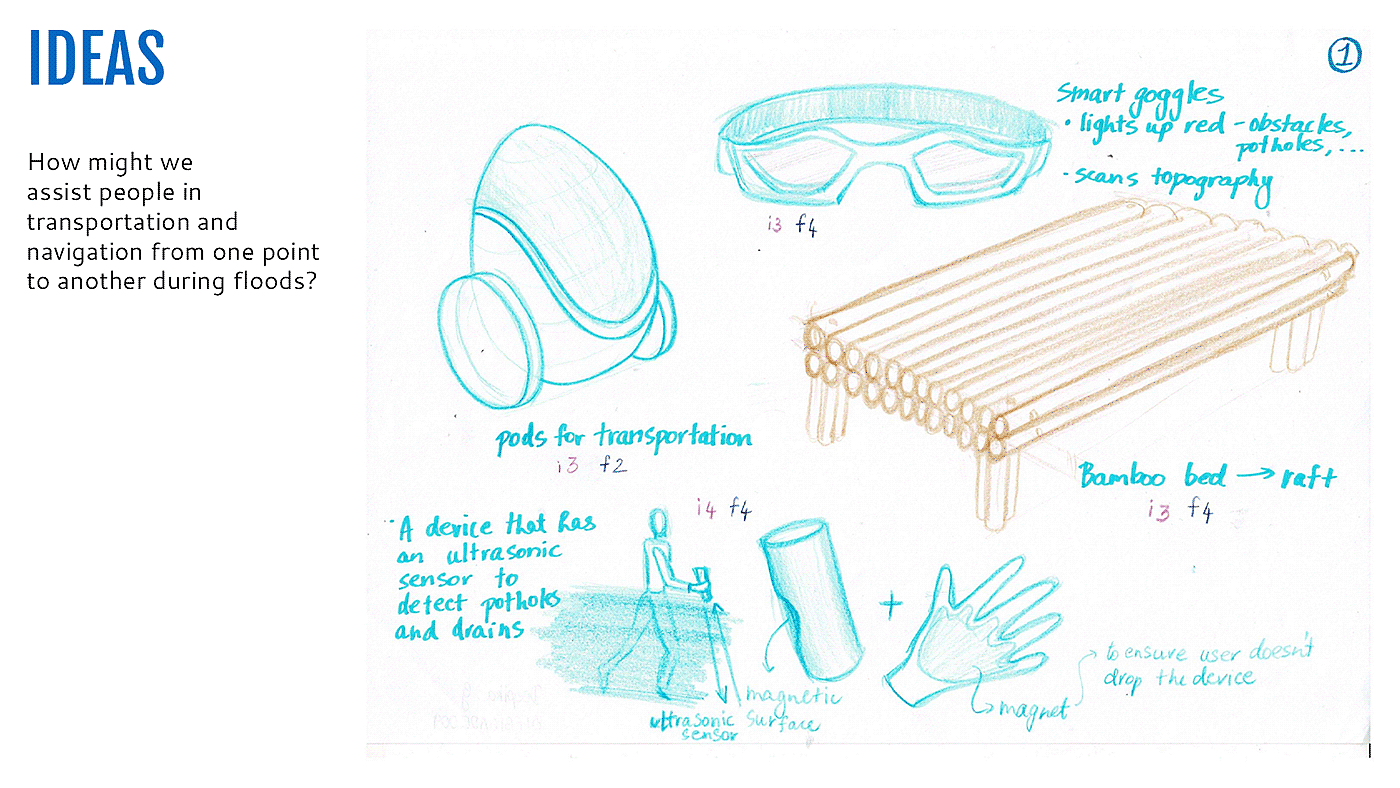 IDEAS
How might we
assist people in
transportation and
navigation from one point
to another during floods?
1
Smart goggles
• lights up red - obstacles,
potholes, ...
- scans topography
i3 f4
pods for transportation
i3 f2
Bamboo bed → raft
i3 f4
i4 f4
A device that has
an ultrasonic
sensor to
detect potholes
and drains
ultrasonic
sensor
magnetic
surface
+
magnet
to ensure user doesn't
drop the device